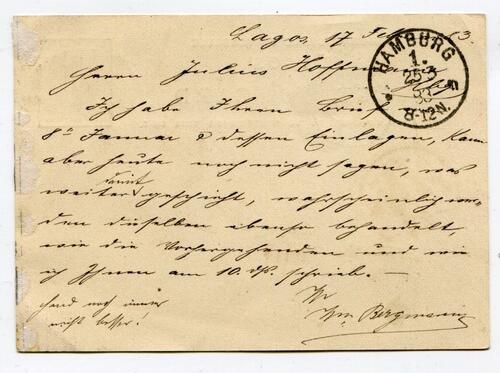 Lagos, 17 Feb 83.
Herrn Julius Hoffmann
Ich habe Ihren Brief vom
8t Januar & dessen Einlagen, kann
aber heute noch nicht sagen, was
weiter damit geschieht, wahrscheinlich wer-
den dieselben ebenso behandelt,
wie die Vorhergehenden und wie
ich Ihnen am 10. ds. schrieb. —
noch immer
nicht besser!
Ihr
Wm. Bergmann
HAMBURG
1.
25 3
83
8-12N.